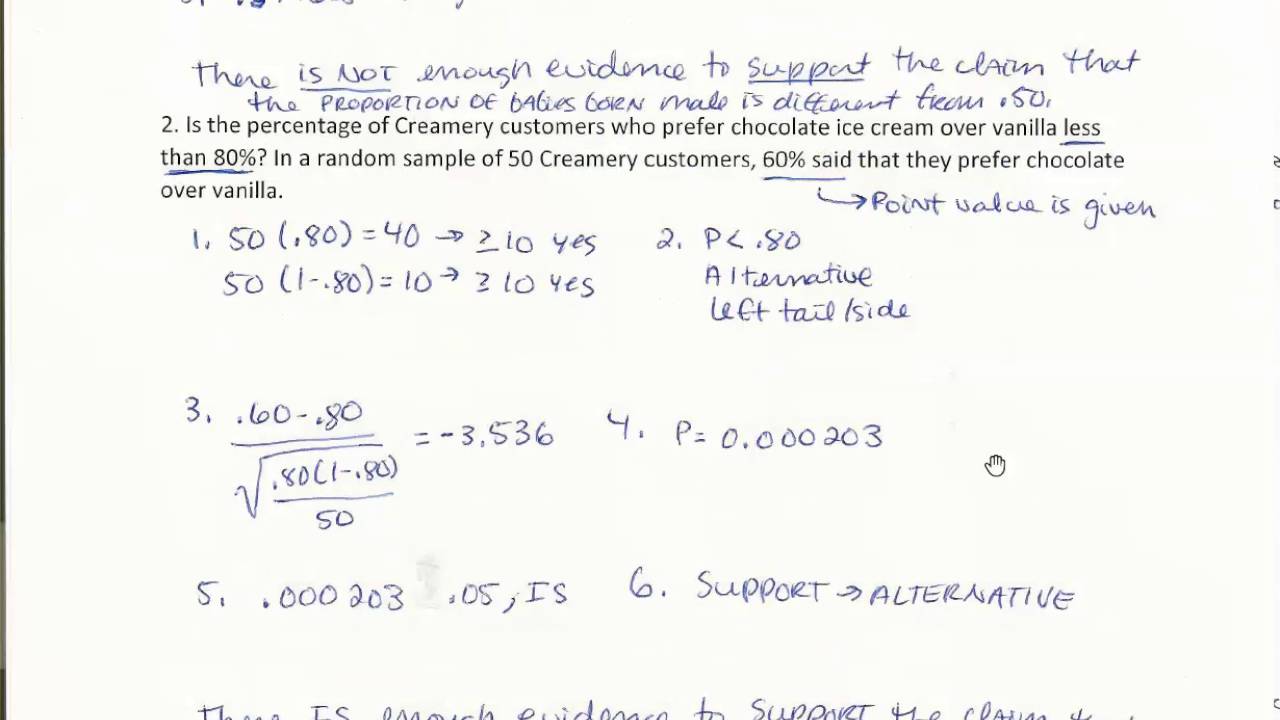 There is NOT enough evidence to support the claim that
the PROPORTION OF babies born male is different from .50.
2. Is the percentage of Creamery customers who prefer chocolate ice cream over vanilla less
than 80%? In a random sample of 50 Creamery customers, 60% said that they prefer chocolate
over vanilla.
↳Point value is given
1. 50 (.80) = 40 → ≥ 10 yes
50 (1-.80) = 10 → ≥ 10 yes
2. P < .80
Alternative
left tail/side
3. .60 - .80
= -3.536
.80(1-.80)
50
4. P = 0.000203
5. .000203 .05, IS
6. SUPPORT → ALTERNATIVE
There IS enough evidence to SUPPORT the claim